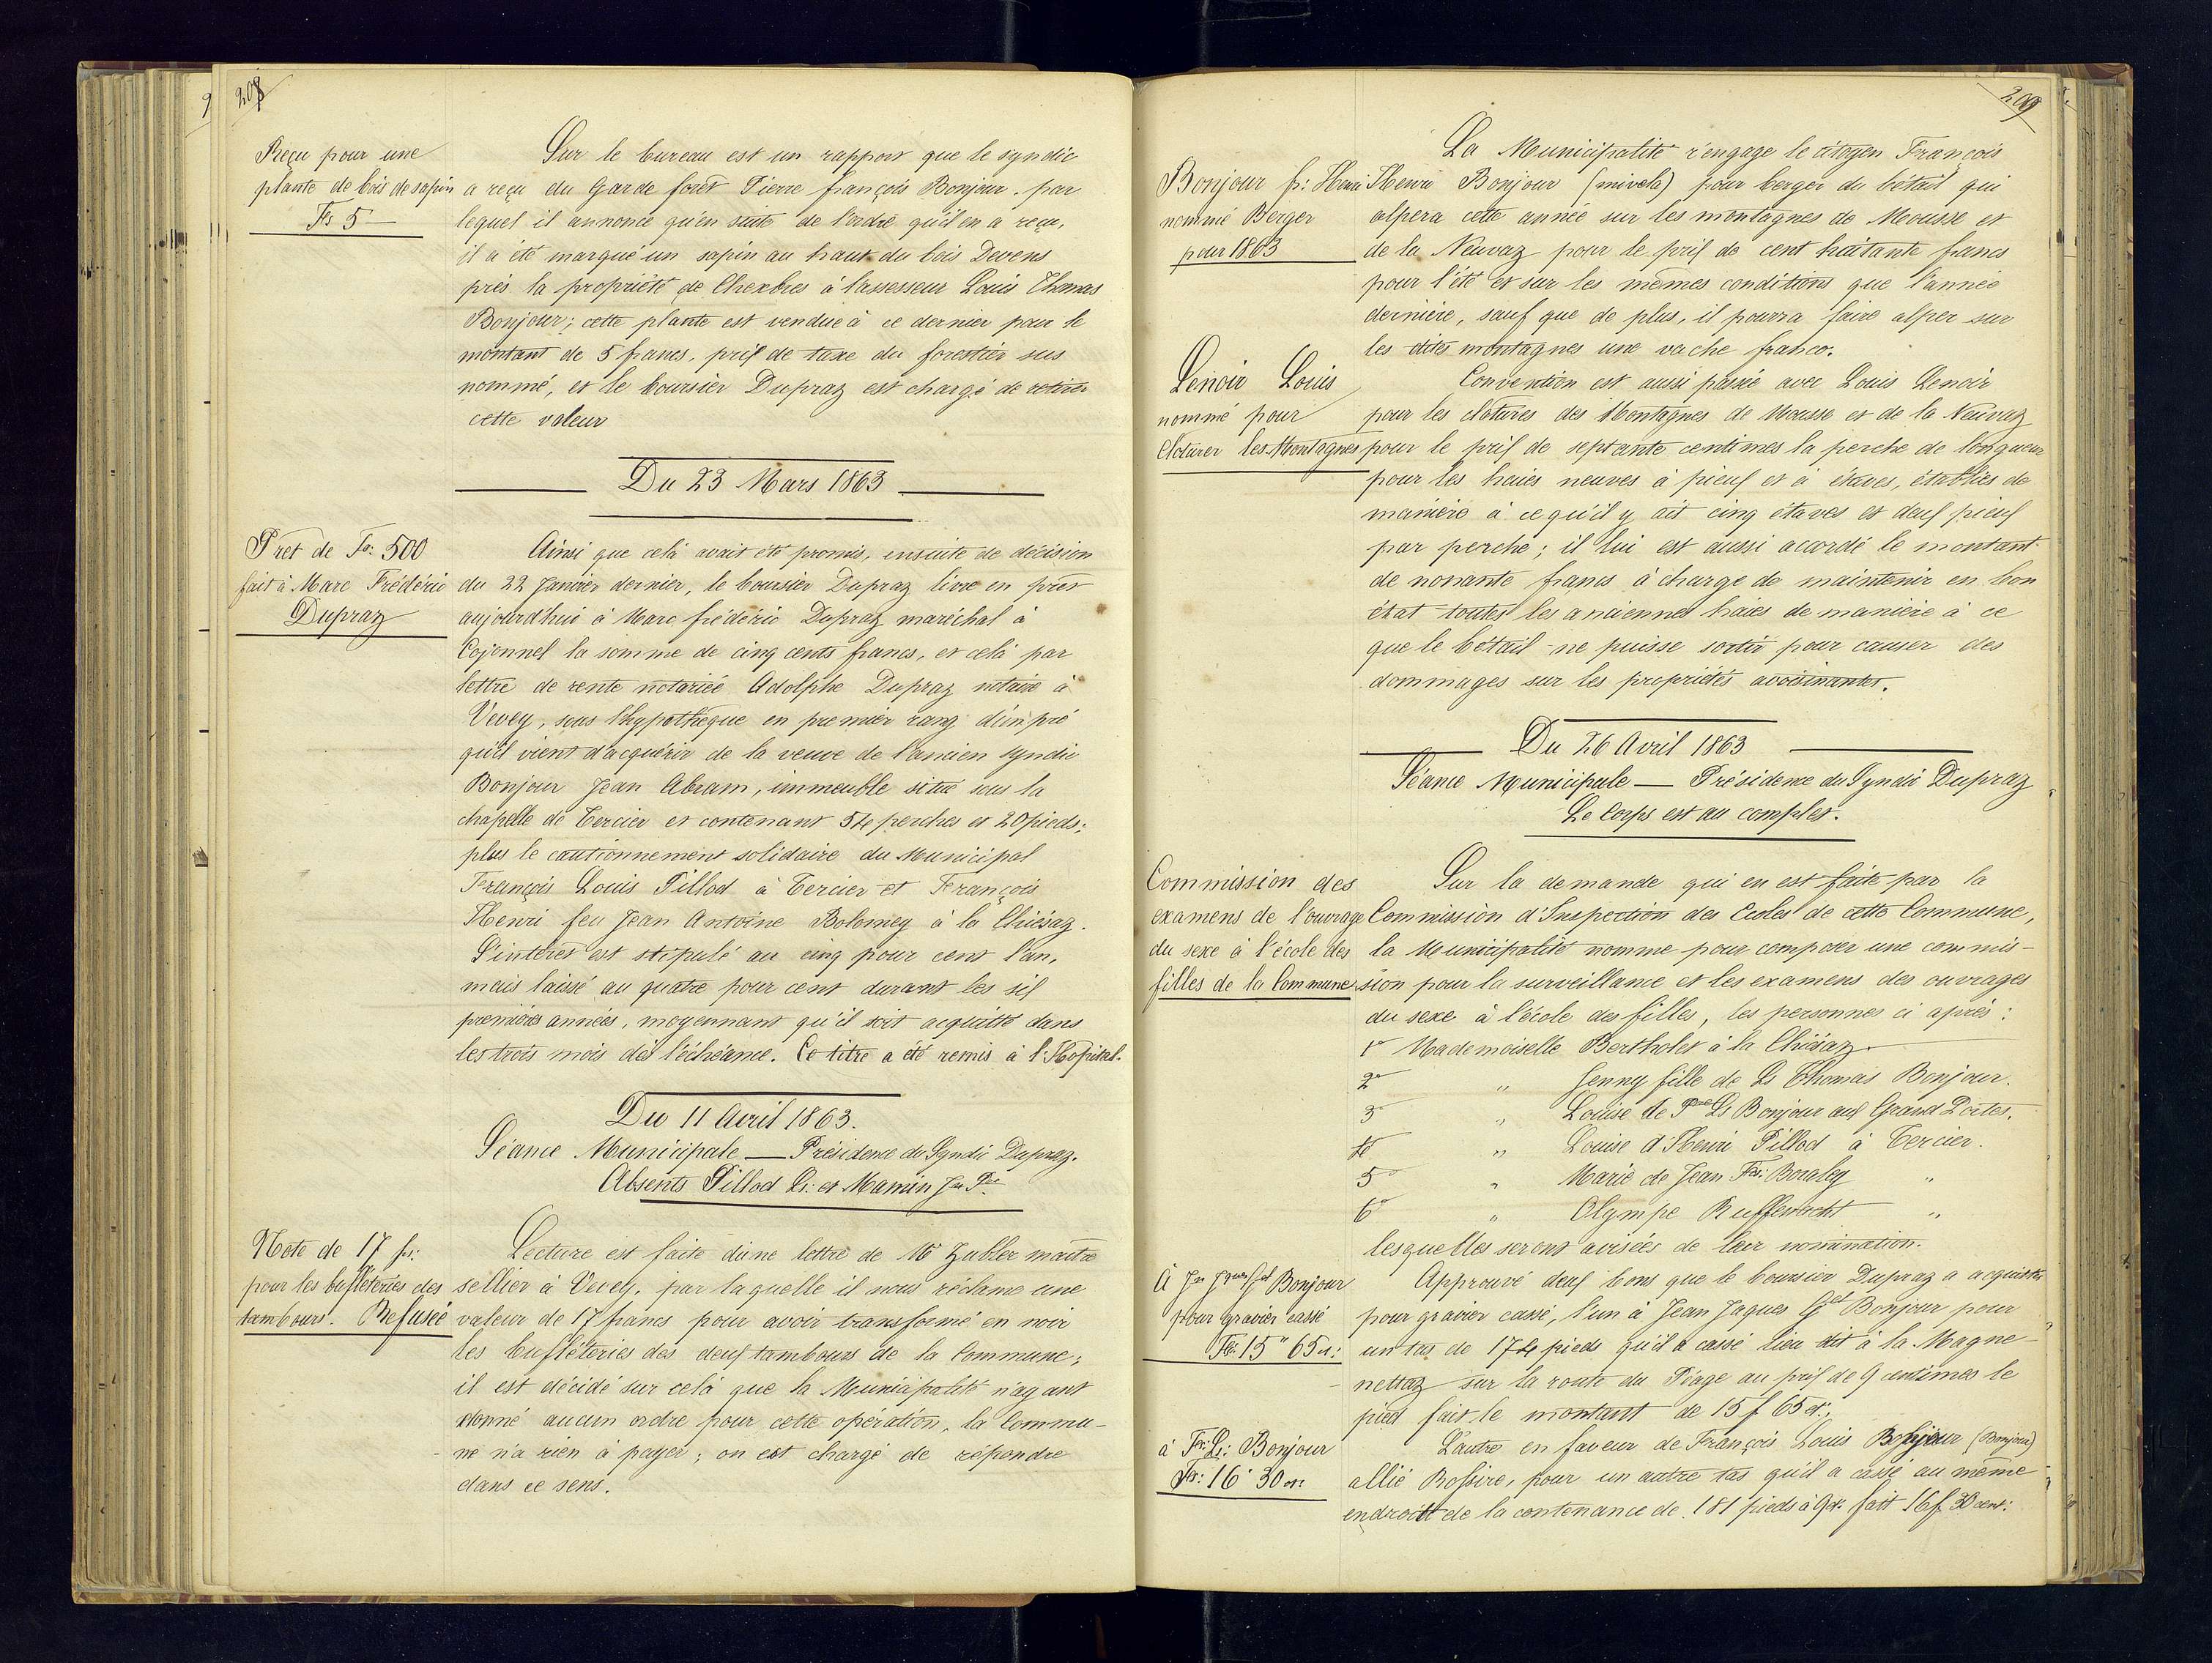 208
Reçu pour une
plante de bois de sapin
Fs 5 —
Sur le bureau est un rapport que le syndic
a reçu du Garde forêt Pierre françois Bonjour, par
lequel il annonce qu'en suite de l'ordre qu'il en a reçu,
il a été marqué un sapin au haut du bois Devens
près la propriété de Chexbres à l'assesseur Louis Thomas
Bonjour; cette plante est vendue à ce dernier pour le
montant de 5 francs, prix de taxe du forestier sus
nommé, et le boursier Dupraz est chargé de retirer
cette valeur
Du 23 Mars 1863
Prêt de Fr: 500
fait à Marc Frédéric
Dupraz
Ainsi que celà avait été promis, ensuite de décision
du 22 Janvier dernier, le boursier Dupraz livre en prêt
aujourd'hui à Marc frédéric Dupraz maréchal à
Cojonnel la somme de cinq cents francs, et celà par
lettre de rente notariée Adolphe Dupraz notaire à
Vevey, sous l'hypothèque en premier rang d'un pré
qu'il vient d'acquérir de la veuve de l'ancien syndic
Bonjour Jean Abram, immeuble situé sous la
chapelle de Tercier et contenant 54 perches et 20 pieds;
plus le cautionnement solidaire du Municipal
François Louis Pillod à Tercier et François
Henri feu Jean Antoine Bolomey à la Chiésaz.
L'intérêt est stipulé au cinq pour cent l'an,
mais laissé au quatre pour cent durant les six
premières années, moyennant qu'il soit acquitté dans
les trois mois dès l'échéance. Ce titre a été remis à l'Hopital.
Du 11 Avril 1863.
Séance Municipale — Présidence du Syndic Dupraz.
Absents Pillod Ls: et Mamin Jn Pre
Note de 17 frs:
pour les buffléteries des
tambours. Refusée
Lecture est faite d'une lettre de Mr Zubler maître
sellier à Vevey, par laquelle il nous réclame une
valeur de 17 francs pour avoir transformé en noir
les buffléteries des deux tambours de la Commune;
il est décidé sur celà que la Municipalité n'ayant
donné aucun ordre pour cette opération, la Commu-
ne n'a rien à payer; on est chargé de répondre
dans ce sens.
209
Bonjour fs: Henri
nommé Berger
pour 1863
La Municipalité r'engage le citoyen François
Henri Bonjour (nivola) pour berger du bétail qui
alpera cette année sur les montagnes de Mousse et
de la Neuvaz pour le prix de cent huitante francs
pour l'été et sur les mêmes conditions que l'année
dernière, sauf que de plus, il pourra faire alper sur
les dites montagnes une vache franco.
Lenoir Louis
nommé pour
Cloturer les Montagnes
Convention est aussi passée avec Louis Lenoir
pour les clotures des Montagnes de Mousse et de la Neuvaz
pour le prix de septante centimes la perche de longueur
pour les haies neuves à pieux et à étaves, établies de
manière à ce qu'il y ait cinq étaves et deux pieux
par perche; il lui est aussi acordé le montant
de nonante francs à charge de maintenir en bon
état toutes les anciennes haies de manière à ce
que le bétail ne puisse sortir pour causer des
dommages sur les propriétés avoisinantes.
Du 26 Avril 1863
Séance Municipale — Présidence du Syndic Dupraz
Le Corps est au complet.
Commission des
examens de l'ouvrage
du sexe à l'école des
filles de la Commune
Sur la demande qui en est faite par la
Commission d'Inspection des Ecoles de cette Commune,
la Municipalité nomme pour composer une commis-
sion pour la surveillance et les examens des ouvrages
du sexe à l'école des filles, les personnes ci après:
1o Mademoiselle Bertholet à la Chiésaz.
2o " Jenny fille de Ls Thomas Bonjour.
3o " Louise de Pre Ls Bonjour aux Grand Portes.
4o " Louise d'Henri Pillod à Tercier.
5o " Marie de Jean Fs: Bouley "
6o " Olympe Ruffenacht "
lesquelles seront avisées de leur nomination.
à Jn Jques Gel Bonjour
pour gravier cassé
Fr: 15 " 65 ct:
Approuvé deux bons que le boursier Dupraz a acquittés
pour gravier cassé, l'un à Jean Jaques Gel Bonjour pour
un tas de 174 pieds qu'il a cassé lieu dit à la Magne-
nettaz sur la route du Péage au prix de 9 centimes le
pied fait le montant de 15 f 65 ct:.
à Fs: Ls: Bonjour
Fr: 16 " 30 ct:
L'autre en faveur de François Louis Bonjour (Bonjour)
allié Rossire, pour un autre tas qu'il a cassé au même
endroit de la contenance de 181 pieds à 9 ct. fait 16 f. 30 cent: